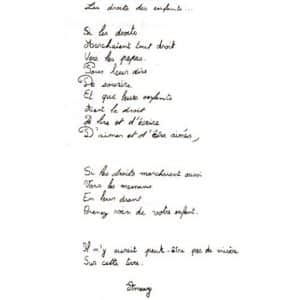 Les droits des enfants...
Si les droits
Marchaient tout droit
Vers les papas.
Pour leur dire
De sourire
Et que leurs enfants
Aient le droit
De lire et d'écrire
D'aimer et d'être aimés,
Si les droits marchaient aussi
Vers les mamans
En leur disant
Prenez soin de votre enfant.
Il n'y aurait peut-être pas de misère
Sur cette terre.